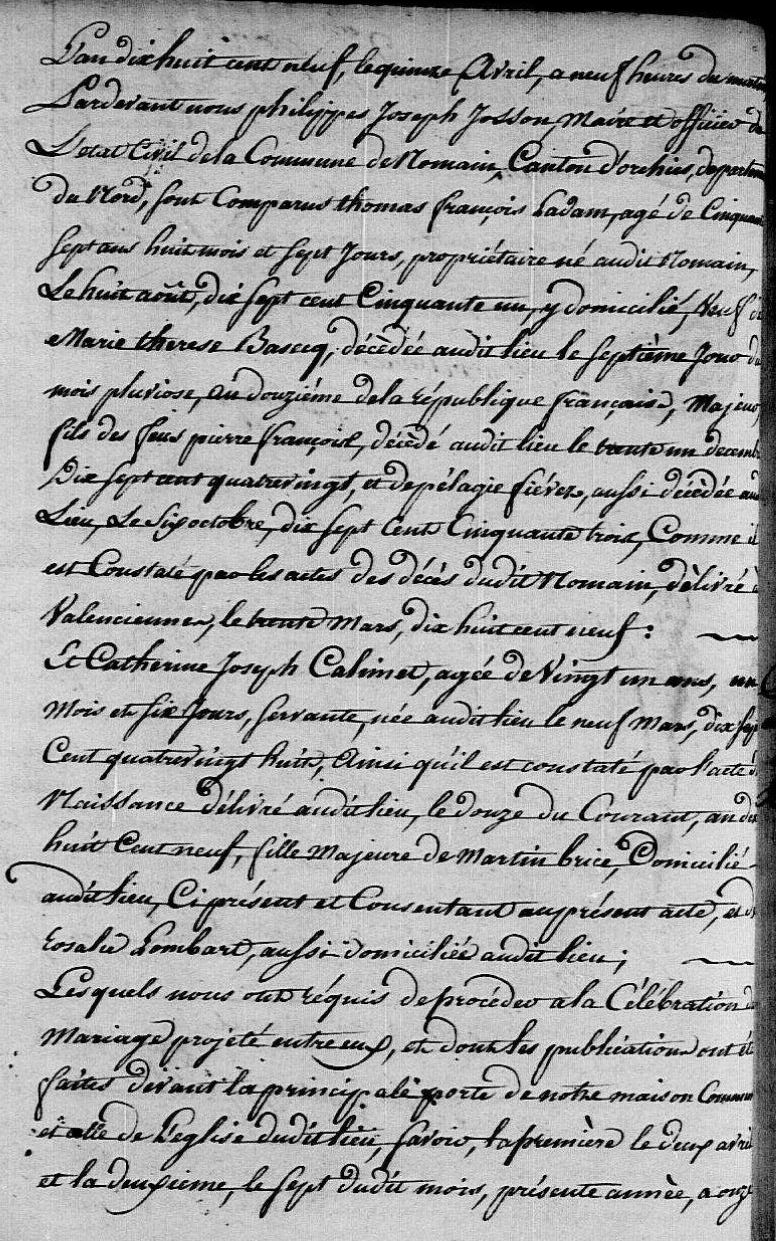 L'an dix huit cent neuf, le quinze Avril, a neuf heures du matin
Pardevant nous philippes Joseph Josson, Maire et officier de
L'etat Civil de la Commune de Nomain, Canton d'orchies, departem
du Nord, sont Comparus thomas françois Ladam, agé de Cinquante
sept ans huit mois et sept Jours, propriétaire né audit Nomain,
Le huit août, dix sept cent Cinquante un, y domicilié, Veuf de
Marie therese Bascq, décédée audit lieu le septième Jour du
mois pluviose, an douzième de la république française, Majeur,
fils des feus pierre françois, décédé audit lieu le trente un decemb
Dix sept cent quatrevingt, et de pélagie fiévez, aussi décédée aud
Lieu, Le Six octobre, dix sept Cent Cinquante trois, Comme il
est Constaté par les actes des décès dudit Nomain, délivré à
Valenciennes, le trente Mars, dix huit cent neuf :
Et Catherine Joseph Calimet, agée de Vingt un ans, un
Mois et six Jours, servante, née audit lieu le neuf Mars, dix sept
Cent quatrevingt huit, Ainsi qu'il est constaté par l'acte de
Naissance délivré audit lieu, le douze du Courant, an dix
huit Cent neuf, fille Majeure de Martin brice, Domicilié
audit lieu, Ci présent et Consentant au présent acte, et de
rosalie Lombart, aussi domiciliée audit lieu ;
Lesquels nous ont réquis de procéder a la Célébration du
Mariage projeté entre eux, et dont les publications ont été
faites devant la principale porte de notre maison Commune
et celle de l'eglise dudit lieu, savoir, la première le deux avril
et la deuxieme, le sept dudit mois, présente année, a onze